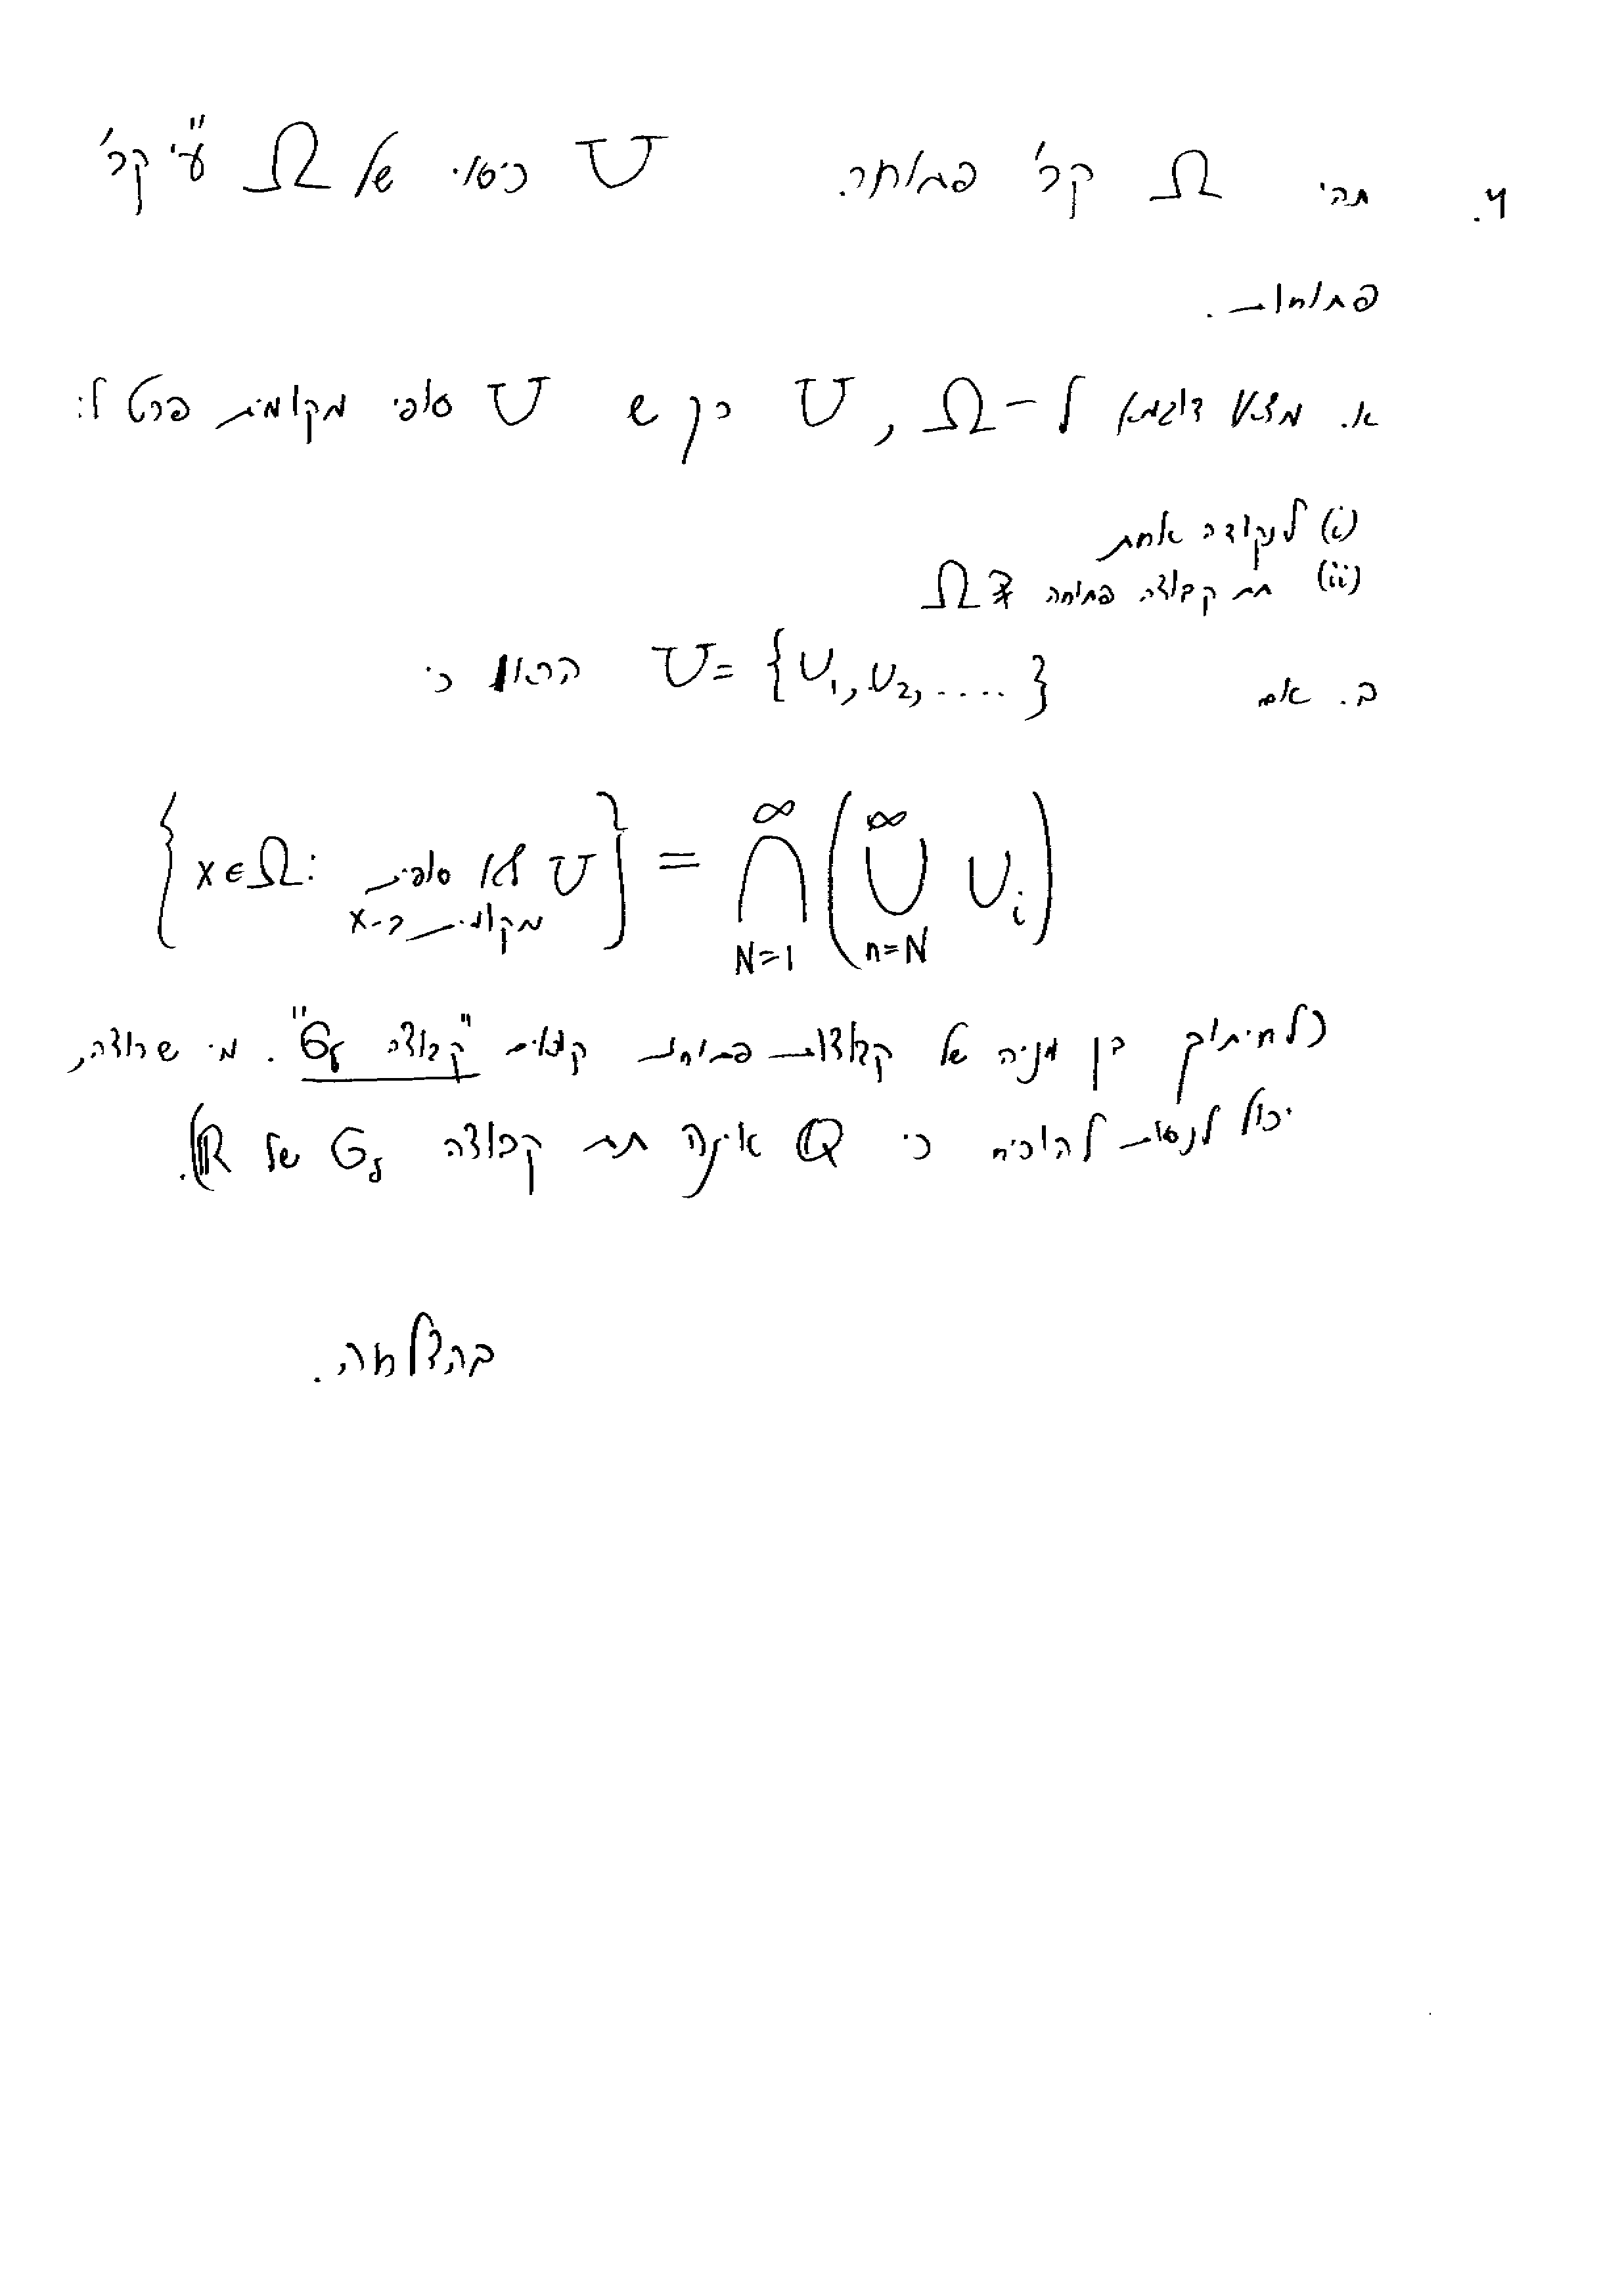 4. תהי Ω קב' פתוחה. U כיסוי של Ω ע"י קב'
פתוחות.
א. מצאו דוגמא ל-Ω, U כך ש U סופי מקומית פרט ל:
(i) לנקודה אחת
(ii) תת קבוצה פתוחה ⊊ Ω
ב. אם U = {U₁, U₂, ....} הראו כי
{x ∈ Ω : U לא סופית מקומית ב-x} = ⋂_{N=1}^{∞} (⋃_{n=N}^{∞} U_i)
(לחיתוך בן מניה של קבוצות פתוחות קוראים "קבוצה G_δ". מי שרוצה,
יכול לנסות להוכיח כי ℚ אינה תת קבוצה G_δ של ℝ).
בהצלחה.